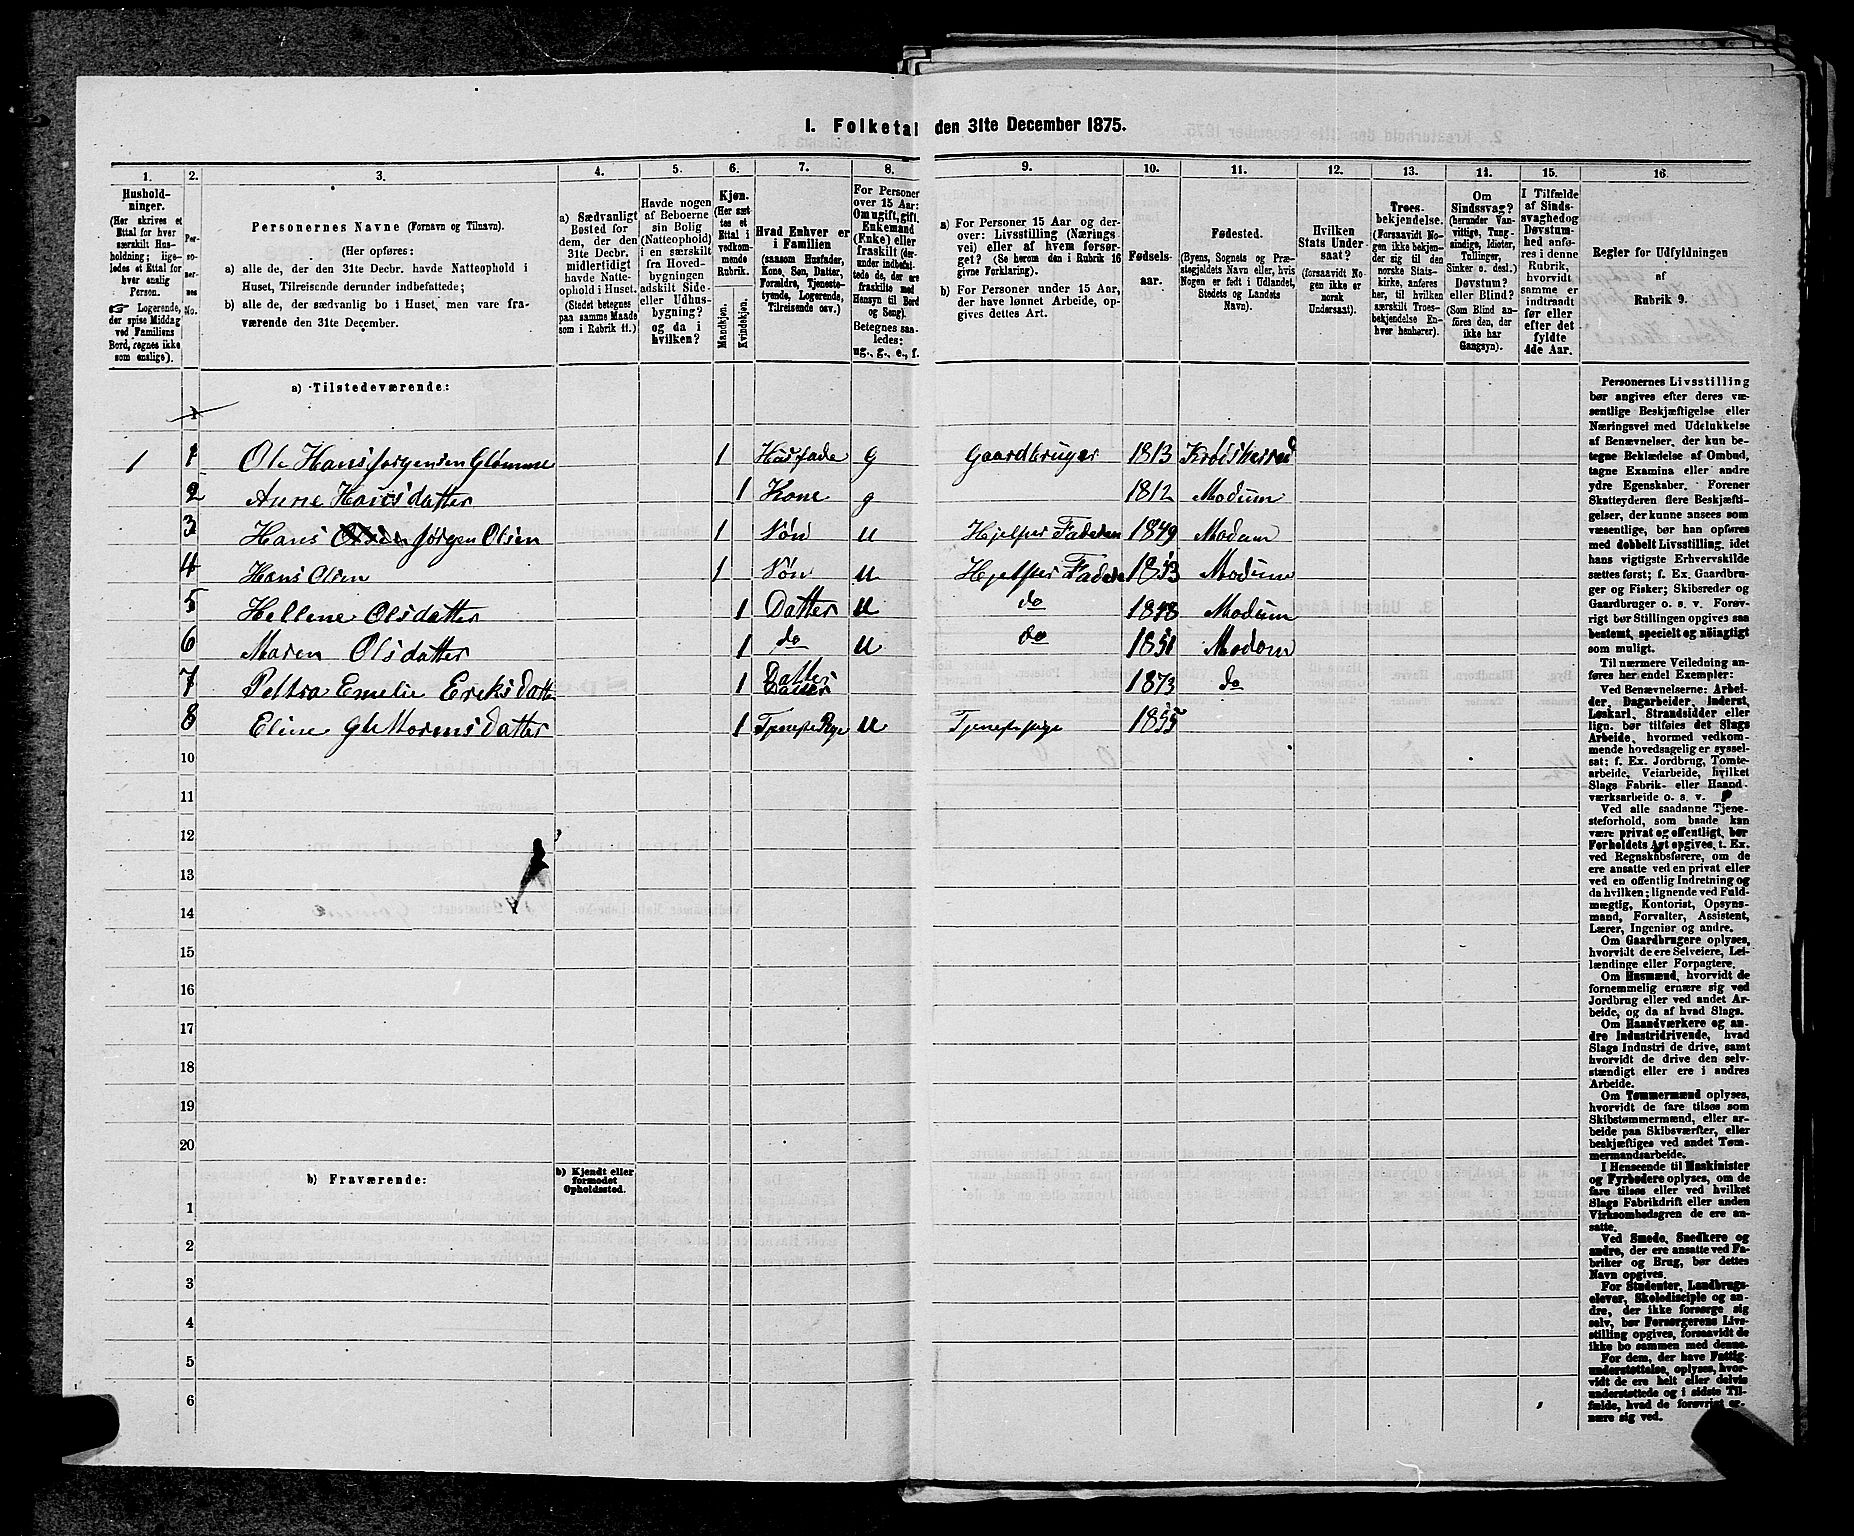 I. Folketal den 31te December 1875.
1. 2. 3. 4. 5. 6. 7. 8. 9. 10. 11. 12. 13. 14. 15. 16.
Hushold-
ninger.
(Her skrives et
Ettal for hver
særskilt Hus-
holdning; lige-
ledes et Ettal for
hver enslig
Person.
☞ Logerende,
der spise Middag
ved Familiens
Bord, regnes ikke
som enslige).
Per-
so-
ner-
nes
No.
Personernes Navne (Fornavn og Tilnavn).
(Her opføres:
a) alle de, der den 31te Decbr. havde Natteophold i
Huset, Tilreisende derunder indbefattede;
b) alle de, der sædvanlig bo i Huset, men vare fra-
værende den 31te December.
a) Sædvanligt
Bosted for
dem, der den
31te Decbr.
midlertidigt
havde Natte-
ophold i Huset.
(Stedet betegnes
paa samme Maade
som i Rubrik 11.)
Havde nogen
af Beboerne
sin Bolig
(Natteophold)
i en særskilt
fra Hoved-
bygningen
adskilt Side-
eller Udhus-
bygning?
og da i
hvilken?
Kjøn.
(Her sæt-
tes et
Ettal i
vedkom-
mende
Rubrik.
Mandkjøn.
Kvindekjøn.
Hvad Enhver er
i Familien
(saasom Husfader,
Kone, Søn, Datter,
Forældre, Tjeneste-
tyende, Logerende,
Tilreisende osv.)
For Personer
over 15 Aar:
Om ugift, gift,
Enkemand
(Enke) eller
fraskilt (der-
under indbefat-
tede de, der ere
fraskilte med
Hensyn til Bord
og Seng).
Betegnes saa-
ledes:
ug., g., e., f.
a) For Personer 15 Aar og der-
over: Livsstilling (Nærings-
vei) eller af hvem forsør-
get? (Se herom den i Rubrik 16
givne Forklaring).
b) For Personer under 15 Aar,
der have lønnet Arbeide, op-
gives dettes Art.
Fødsels-
aar.
Fødested.
(Byens, Sognets og Præ-
stegjeldets Navn eller, hvis
Nogen er født i Udlandet,
Stedets og Landets
Navn).
Hvilken
Stats Under-
saat?
(forsaavidt No-
gen ikke er
norsk
Undersaat).
Troes-
bekjendelse.
(Forsaavidt No-
gen ikke bekjen-
der sig til den
norske Stats-
kirke, anføres
her, til hvilken
særskilt Troes-
bekjendelse En-
hver henhører).
Om
Sindssvag?
(herunder Van-
vittige, Tung-
sindige, Idioter,
Tullinger,
Sinker o. desl.)
Døvstum?
eller Blind?
(Som Blind an-
føres den, der
ikke har
Gangsyn).
I Tilfælde
af Sinds-
svaghed og
Døvstum-
hed anfø-
res i denne
Rubrik,
hvorvidt
samme er
indtraadt
før eller
efter det
fyldte
4de Aar.
Regler for Udfyldningen
af
Rubrik 9.
a) Tilstedeværende:
1
1 1 Ole Hans Jørgensen Glømme 1 Husfade g Gaardbruger 1813 Krødsherred
2 Anne Hansdatter 1 Kone g 1812 Modum
3 Hans Olsen Jørgen Olsen 1 Søn u Hjelper Faderen 1849 Modum
4 Hans Olsen 1 Søn u Hjelper Fadere 1853 Modum
5 Hellene Olsdatter 1 Datter u do 1848 Modum
6 Maren Olsdatter 1 do u do 1851 Modom
7 Pettra Emelie Eriksdatte 1 Datter 1873 do
8 Eline Gulmorensdatter 1 Tjenestepige u Tjenestepige 1855
10
11
12
13
14
15
16
17
18
19
20
b) Fraværende:
b) Kjendt eller
formodet
Opholdssted.
1
2
3
4
5
6
Personernes Livsstilling
bør angives efter deres væ-
sentlige Beskjæftigelse eller
Næringsvei med Udelukkelse
af Benævnelser, der kun be-
tegne Beklædelse af Ombud,
tagne Examina eller andre
ydre Egenskaber. Forener
Skatteyderen flere Beskjæfti-
gelser, der kunne ansees som
væsentlige, bør han opføres
med dobbelt Livsstilling, idet
hans vigtigste Erhvervskilde
sættes først; f. Ex. Gaardbru-
ger og Fisker; Skibsreder og
Gaardbruger o. s. v. Forøv-
rigt bør Stillingen opgives saa
bestemt, specielt og nøiagtigt
som muligt.
Til nærmere Veiledning an-
føres her endel Exempler:
Ved Benævnelserne: Arbei-
der, Dagarbeider, Inderst,
Løskarl, Strandsidder eller
lign. bør tilføies det Slags
Arbeide, hvormed vedkom-
mende hovedsagelig er syssel-
sat; f. Ex. Jordbrug, Tomte-
arbeide, Veiarbeide, hvilket
Slags Fabrik- eller Haand-
værksarbeide o. s. v.
Ved alle saadanne Tjene-
steforhold, som baade kan
være privat og offentligt, bør
Forholdets Art opgives, t. Ex.
ved Regnskabsførere, om de
ere ansatte ved en privat eller
ved en offentlig Indretning og
da hvilken; lignende ved Fuld-
mægtig, Kontorist, Opsyns-
mand, Forvalter, Assistent,
Lærer, Ingeniør og andre.
Om Gaardbrugere oplyses,
hvorvidt de ere Selveiere, Lei-
lændinge eller Forpagtere.
Om Husmænd, hvorvidt de
fornemmelig ernære sig ved
Jordbrug eller ved andet Ar-
beide, og da af hvad Slags.
Om Haandværkere og an-
dre Industridrivende, hvad
Slags Industri de drive, samt
hvorvidt de drive den selv-
stændigt eller ere i andres
Arbeide.
Om Tømmermænd oplyses,
hvorvidt de fare tilsøs som
Skibstømmermænd, eller ar-
beide paa Skibsværfter, eller
beskjæftiges ved andet Tøm-
mermandsarbeide.
I Henseende til Maskinister
og Fyrbødere oplyses, om de
fare tilsøs eller ved hvilket
Slags Fabrikdrift eller anden
Virksomhedsgren de ere an-
satte.
Ved Smede, Snedkere og
andre, der ere ansatte ved Fa-
briker og Brug, bør dettes
Navn opgives.
For Studenter, Landbrugs-
elever, Skoledisciple og an-
dre, der ikke forsørge sig
selv, bør Forsørgerens Livs-
stilling opgives, forsaavidt de
ikke bo sammen med denne.
For dem, der have Fattig-
understøttelse, oplyses, hvor-
vidt de ere helt eller delvis
understøttede og i sidste Til-
fælde, hvad de forøvrigt er-
nære sig ved.